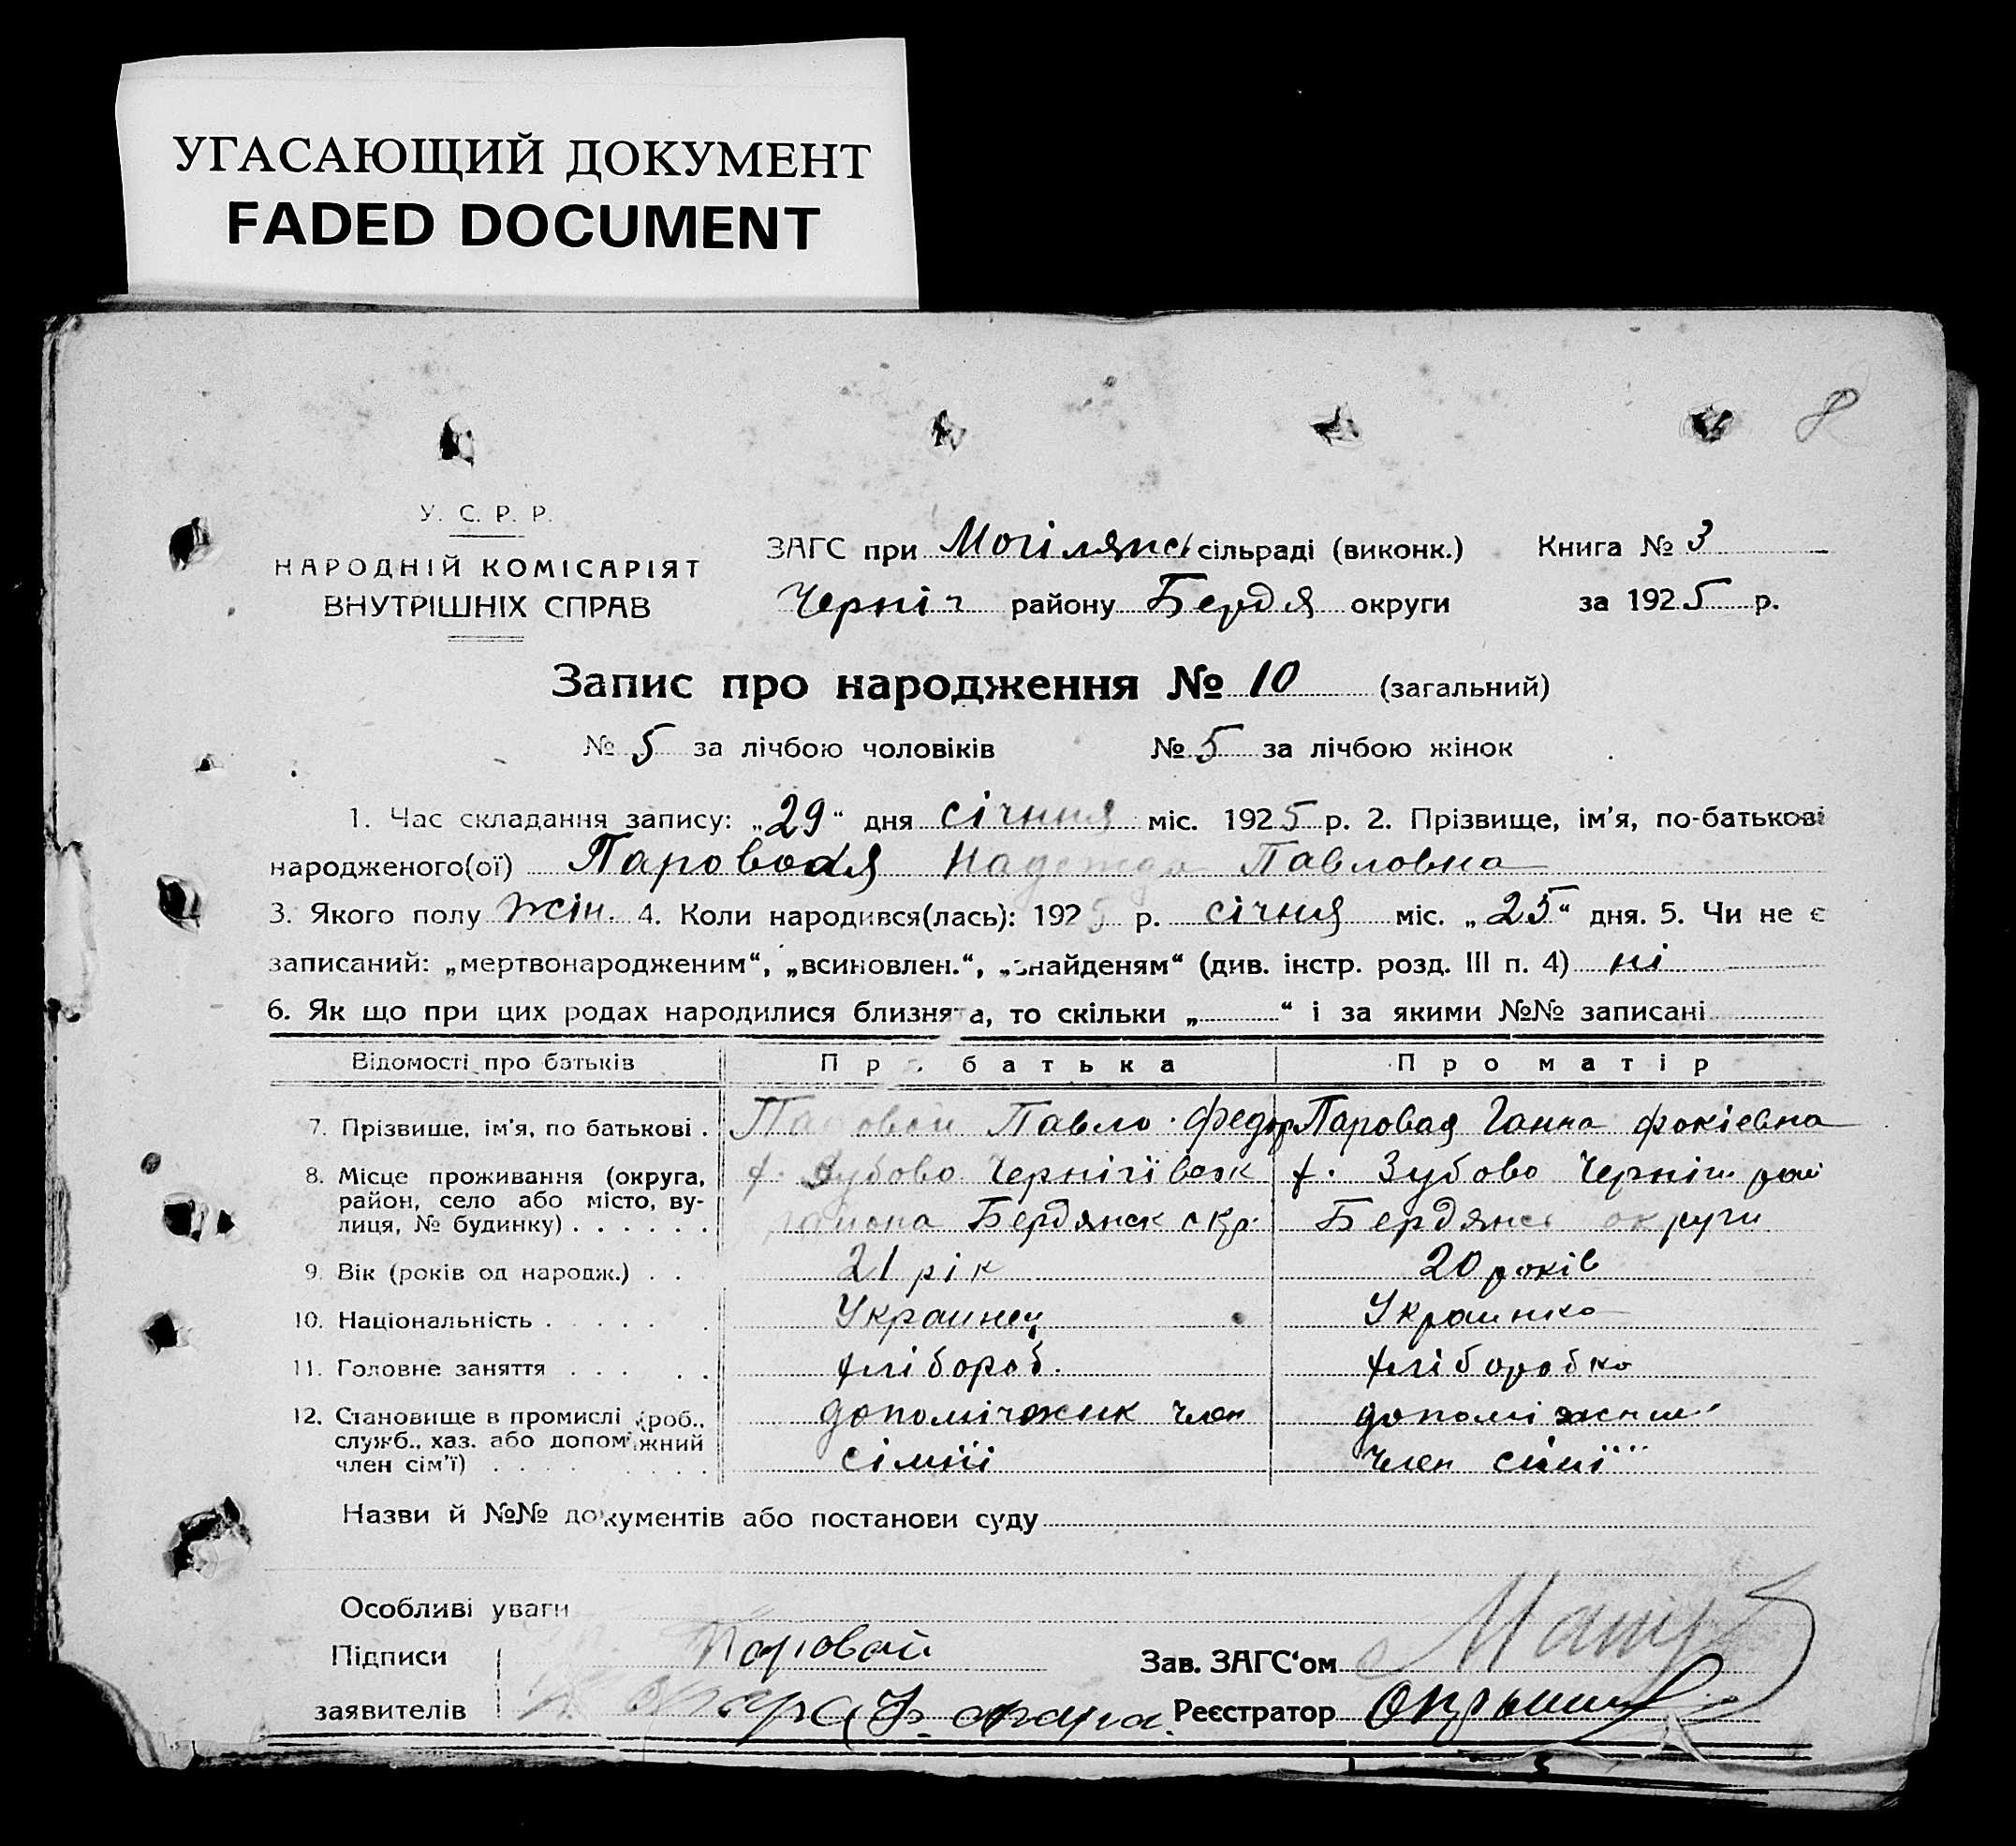 УГАСАЮЩИЙ ДОКУМЕНТ
FADED DOCUMENT
8
У. С. Р. Р.
НАРОДНІЙ КОМІСАРІЯТ
ВНУТРІШНІХ СПРАВ
ЗАГС при Могілянсь сільраді (виконк.) Книга № 3
Черніг району Бердя округи за 1925 р.
Запис про народження № 10 (загальний)
№ 5 за лічбою чоловіків № 5 за лічбою жінок
1. Час складання запису: „29“ дня січння міс. 1925 р. 2. Прізвище, ім'я, по-батькові
народженого(ої) Паровая Надежда Павловна
3. Якого полу жін. 4. Коли народився(лась): 1925 р. січня міс. „25“ дня. 5. Чи не є
записаний: „мертвонародженим“, „всиновлен.“, „знайденям“ (див. інстр. розд. III п. 4) ні
6. Як що при цих родах народилися близнята, то скільки „ “ і за якими №№ записані
Відомості про батьків Про батька Про матір
7. Прізвище, ім'я, по батькові . Паровой Павло Федор Паровая Ганна Фокіевна
8. Місце проживання (округа, х. Зубово Чернігівск х. Зубово Черніг рай
район, село або місто, ву-
лиця, № будинку) . . . . . . района Бердянск окр. Бердянсь округи
9. Вік (років од народж.) . . 21 рік 20 років
10. Національність . . . . . . Украинец Украинка
11. Головне заняття . . . . . хлібороб. хліборобка
12. Становище в промислі (роб., член
служб., хаз. або допоміжний
член сім'ї) . . . . . . . . сімїї член сімїї
Назви й №№ документів або постанови суду
Особливі уваги
Підписи Паровой Зав. ЗАГС‘ом
заявителів Реєстратор